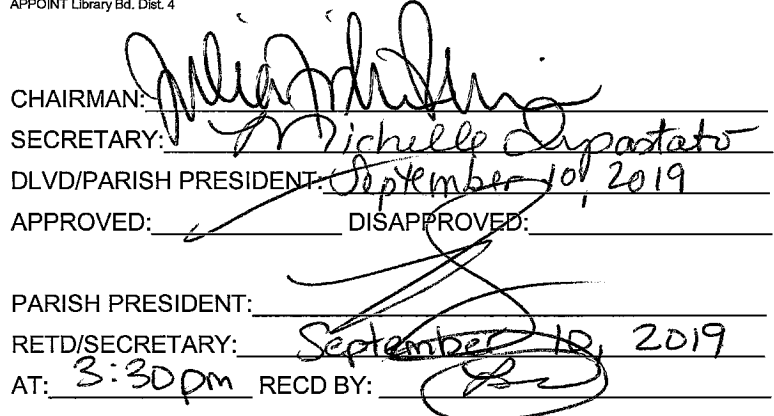 APPOINT Library Bd. Dist. 4
CHAIRMAN:
SECRETARY: Michelle Impastato
DLVD/PARISH PRESIDENT: September 10, 2019
APPROVED: DISAPPROVED:
PARISH PRESIDENT:
RETD/SECRETARY: September 10, 2019
AT: 3:30pm RECD BY: